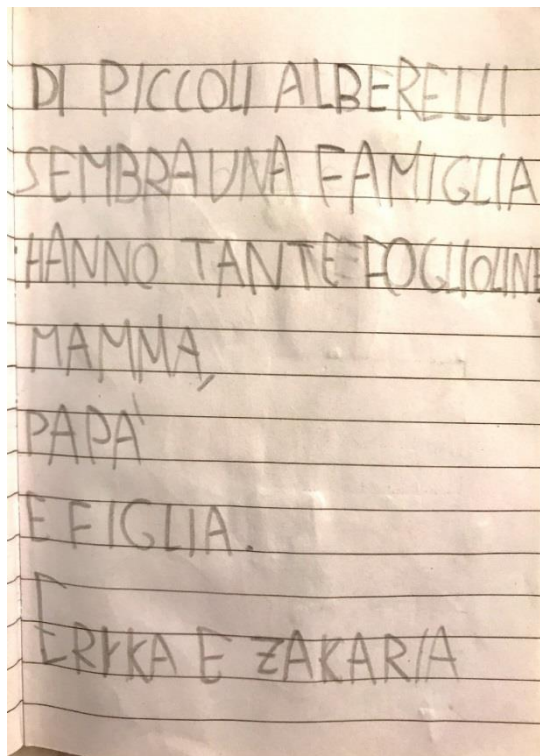 DI PICCOLI ALBERELLI
SEMBRA UNA FAMIGLIA
HANNO TANTE FOGLIOLINE,
MAMMA,
PAPA'
E FIGLIA.
ERIKA E ZAKARIA